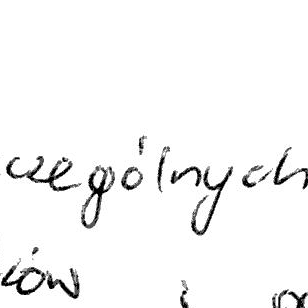 czególnych
ków i